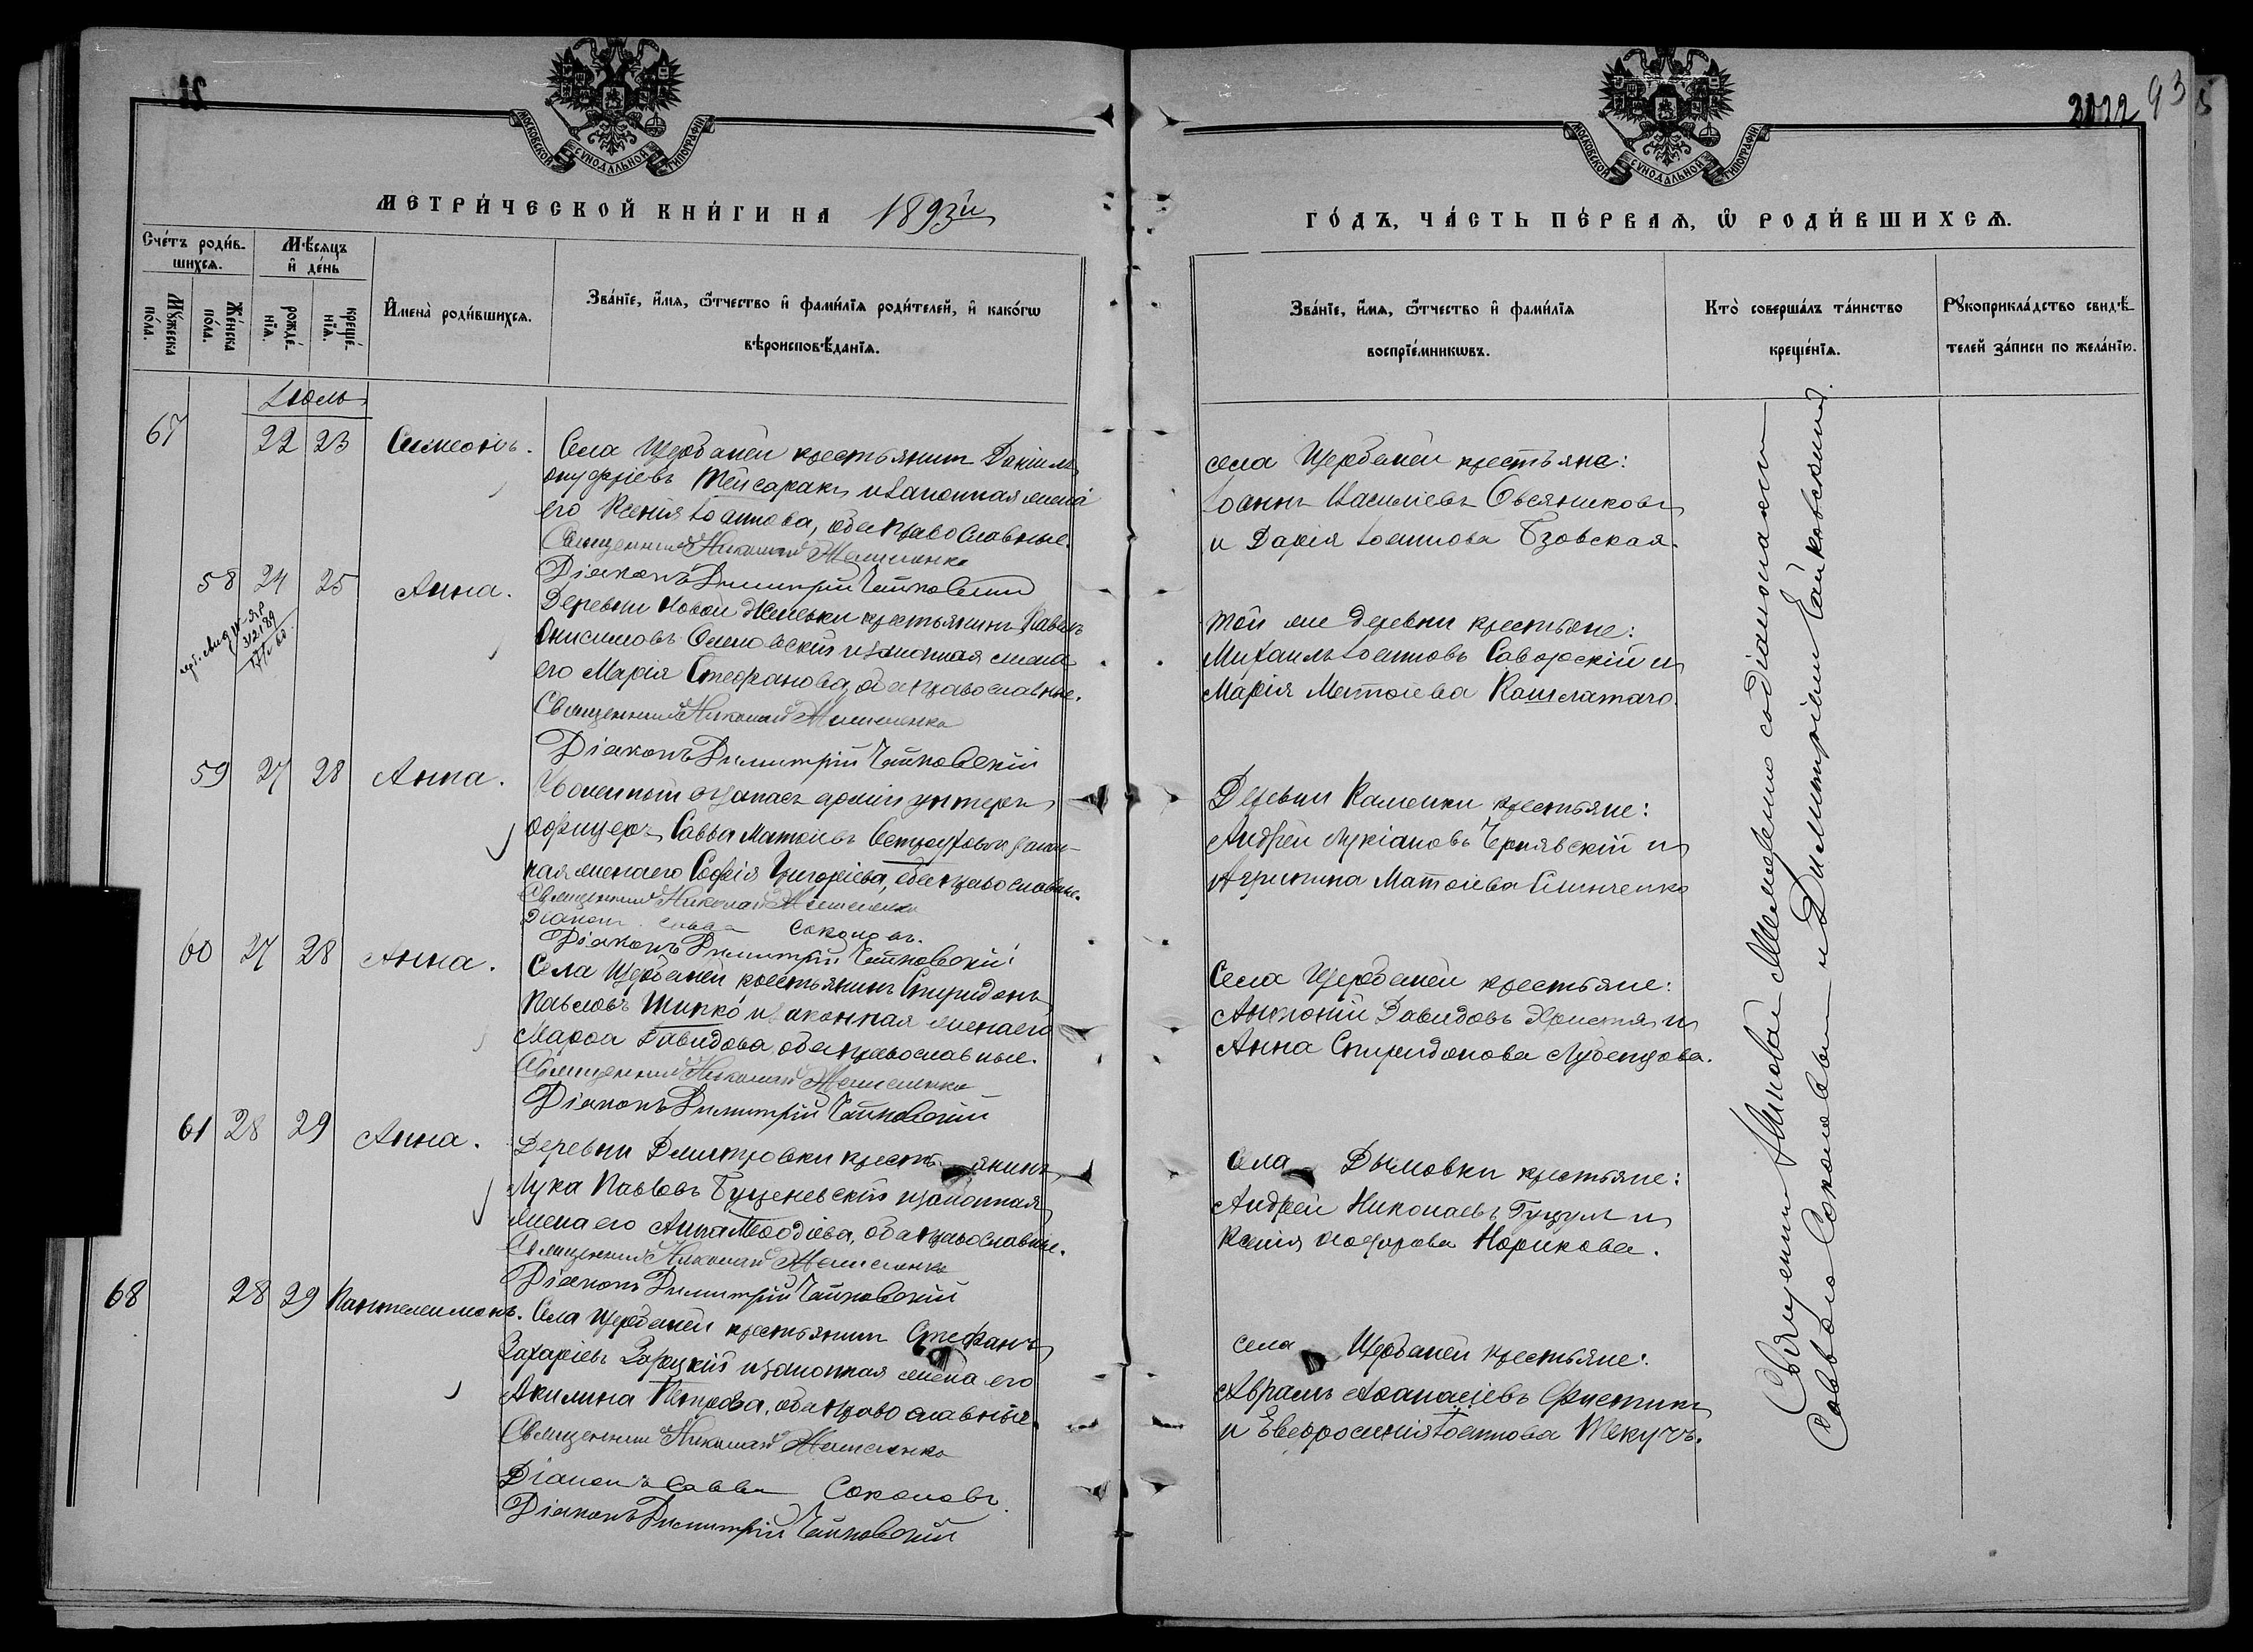 МОСКОВСКОЙ СѴНОДАЛЬНОЙ ТИПОГРАФІИ
МЕТРИ́ЧЕСКОЙ КНИ́ГИ НА 1893й
Сче́тъ роди́в-
шихсѧ.
Мѣ́сѧцъ
и҆ де́нь
Мꙋ́жеска
по́ла.
Же́нска
по́ла.
рожде́-
нїѧ.
креще́-
нїѧ.
И҆мена̀ роди́вшихсѧ.
Зва́нїе, и҆́мѧ, ѻ҆́тчество и҆ фами́лїѧ роди́телей, и҆ како́гѡ
вѣроисповѣ́данїѧ.
Іюль
67 22 23 Симеонъ. Села Щербаней крестьянинъ Іоакимъ
онуфріевъ и законная жена
его Ксенія Іоаннова, оба православные.
Священникъ Николай
Діаконъ Димитрій Чайковскій
58 24 25 Анна.
Деревни Новой крестьянинъ Павелъ
Онисимовъ и законная жена
его Марія Стефанова, оба православные.
Священникъ Николай
Діаконъ Димитрій Чайковскій
59 27 28 Анна.
Уволенный въ запасъ арміи унтеръ
офицеръ Савва Матѳіевъ и закон-
ная жена его Софія Григоріева, оба православные.
Священникъ Николай
Діаконъ Савва Соколовъ.
Діаконъ Димитрій Чайковскій
60 27 28 Анна.
Села Щербаней крестьянинъ Спиридонъ
Павловъ Шипко и законная жена его
Марѳа Давидова оба православные.
Священникъ Николай
Діаконъ Димитрій Чайковскій
61 28 29 Анна.
Деревни Дмитровки крестьянинъ
Лука Павловъ и законная
жена его Анна Меѳодіева, оба православные.
Священникъ Николай
Діаконъ Димитрій Чайковскій
68 28 29 Пантелеимонъ. Села Щербаней крестьянинъ Стефанъ
Захаріевъ Зарицкій и законная жена его
Акилина Петрова, оба православные.
Священникъ Николай
Діаконъ Савва Соколовъ.
Діаконъ Димитрій Чайковскій
93
22
МОСКОВСКОЙ СѴНОДАЛЬНОЙ ТИПОГРАФІИ
ГО́ДЪ, ЧА́СТЬ ПЕ́РВАѦ, Ѡ҆ РОДИ́ВШИХСѦ.
Зва́нїе, и҆́мѧ, ѻ҆́тчество и҆ фами́лїѧ
воспрїе́мникѡвъ.
Кто̀ соверша́лъ та́инство
креще́нїѧ.
Рꙋкоприкла́дство свидѣ́-
телей за́писи по жела́нїю.
села Щербаней крестьяне:
Іоаннъ Василіевъ Овсяниковъ
и Дарія Іоаннова Бзовская.
той же деревни крестьяне:
Михаилъ Іоанновъ Саворскій и
Марія Матѳіева
Деревни Каменки крестьяне:
Андрей Лукіановъ Чернявскій и
Агрипина Матѳіева
Села Щербаней крестьяне:
Антоній Давидовъ и
Анна Спиридонова
Села Дымовки крестьяне:
Андрей Николаевъ Гуцулъ и
Ксенія Ѳеодорова Норикова.
села Щербаней крестьяне:
Аврамъ Аѳанасіевъ
и Евфросинія Іоаннова Текучъ.
Священникъ Николай съ діаконами
Саввою Соколовымъ и Димитріемъ Чайковскимъ.